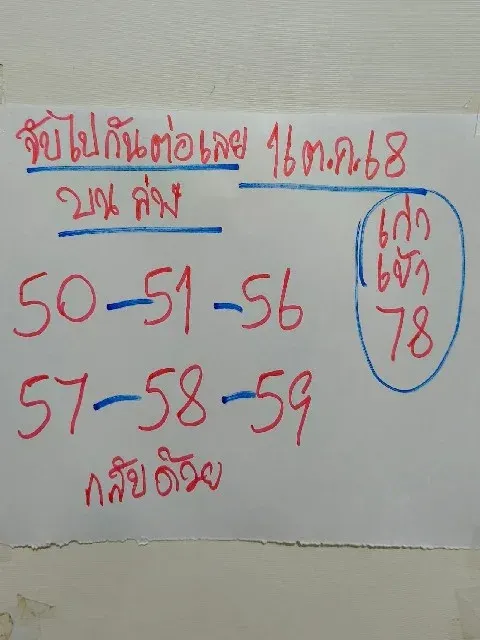 จับไปกันต่อเลย 1 ต.ค. 68
บน ล่าง
50-51-56
57-58-59
กลับด้วย
เก่า
เข้า
78